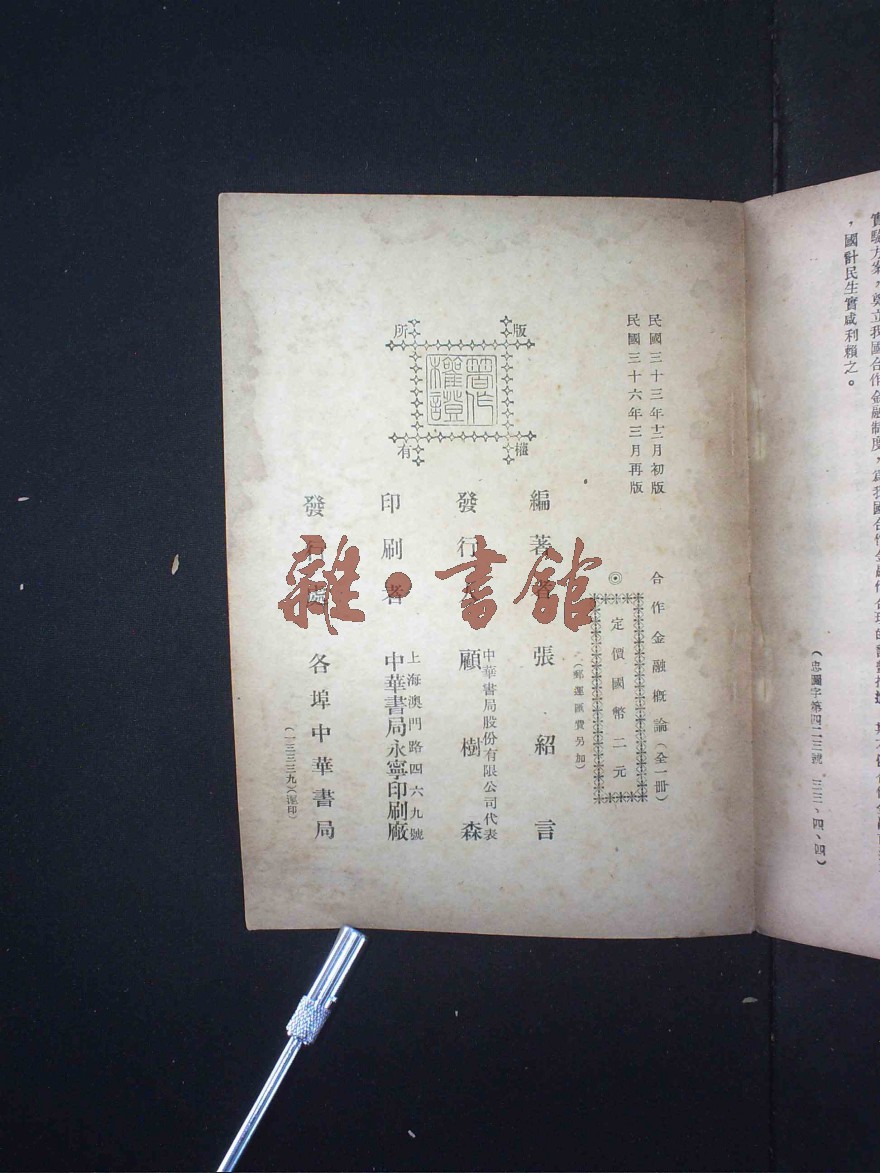 ，國計民生實咸利賴之。
（忠圖字第四二三號　三三、四、四）
民國三十三年十二月初版
民國三十六年三月再版
合作金融概論（全一冊）
◎定價國幣二元
（郵運匯費另加）
版權所有
著作權證
編著者　張紹言
中華書局股份有限公司代表
發行人　顧樹森
上海澳門路四六九號
印刷者　中華書局永寧印刷廠
發行處　各埠中華書局
（一三三三九）（滬印）
雜·書館